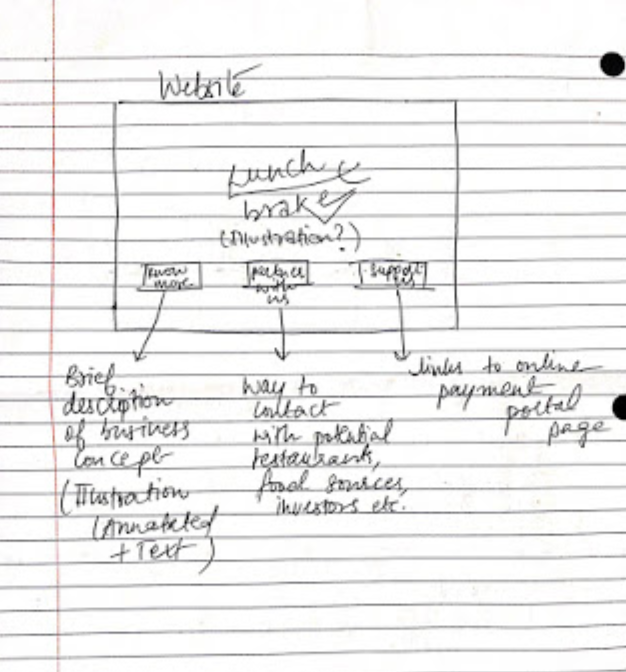 Website
Lunch
brake
(Illustration?)
know
more
partner
with
us
support
us
Brief
description
of business
concept
(Illustration
(Annotated
+ Text)
way to
contact
with potential
restaurants,
food sources,
investors etc.
links to online
payment
portal
page